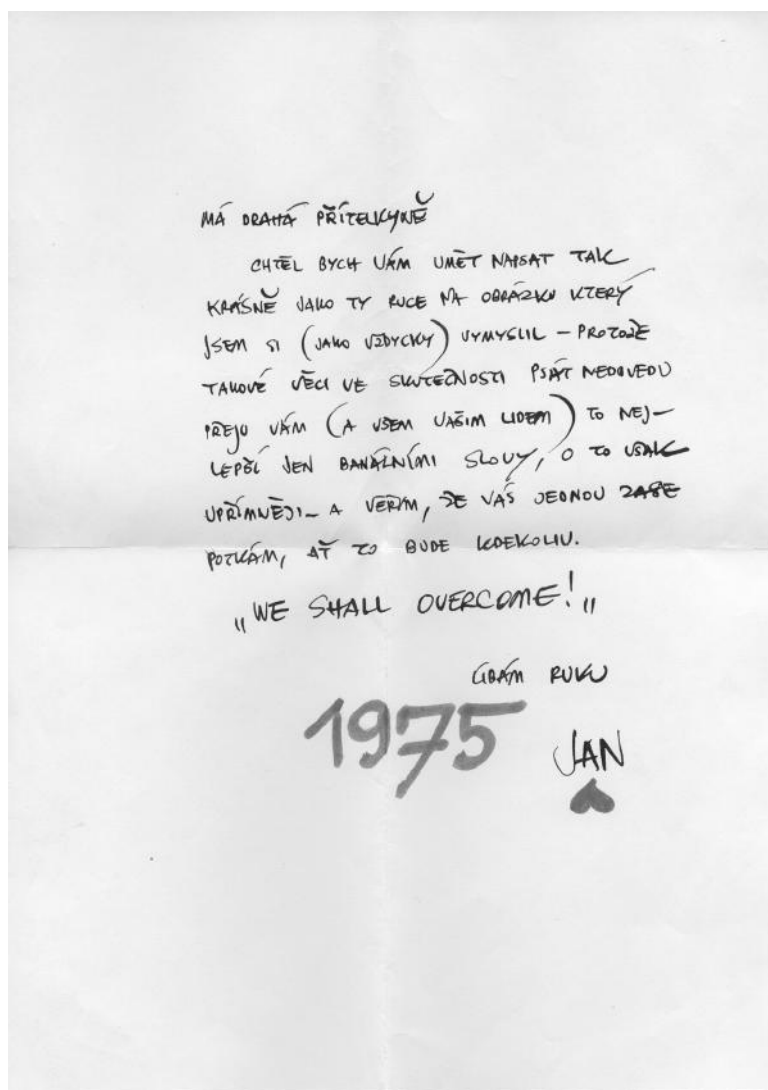 MÁ DRAHÁ PŘÍTELKYNĚ
CHTĚL BYCH VÁM UMĚT NAPSAT TAK
KRÁSNĚ JAKO TY RUCE NA OBRÁZKU KTERÝ
JSEM SI (JAKO VŽDYCKY) VYMYSLIL – PROTOŽE
TAKOVÉ VĚCI VE SKUTEČNOSTI PSÁT NEDOVEDU
PŘEJU VÁM (A VŠEM VAŠIM LIDEM) TO NEJ–
LEPŠÍ JEN BANÁLNÍMI SLOVY, O TO VŠAK
UPŘÍMNĚJI – A VĚŘÍM, ŽE VÁS JEDNOU ZASE
POTKÁM, AŤ TO BUDE KDEKOLIV.
„WE SHALL OVERCOME!„
LÍBÁM RUKU
1975
JAN